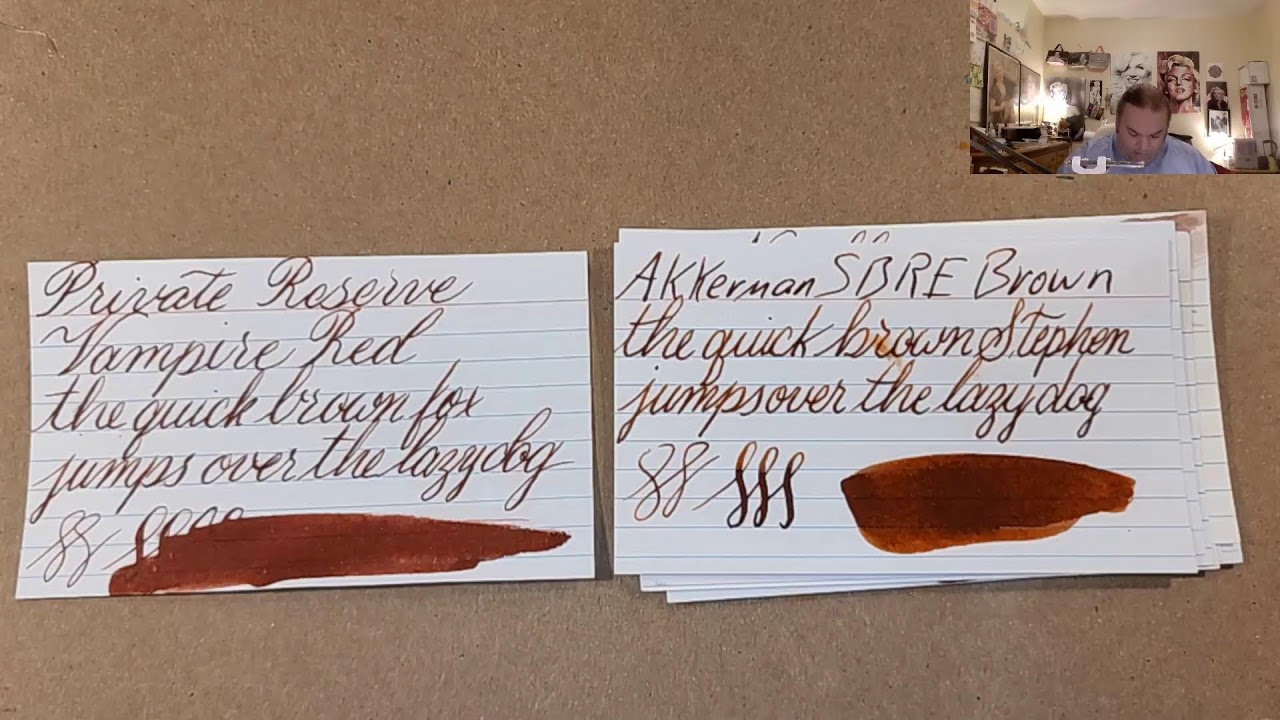 Private Reserve
Vampire Red
the quick brown fox
jumps over the lazy dog
AKKerman SBRE Brown
the quick brown Stephen
jumps over the lazy dog